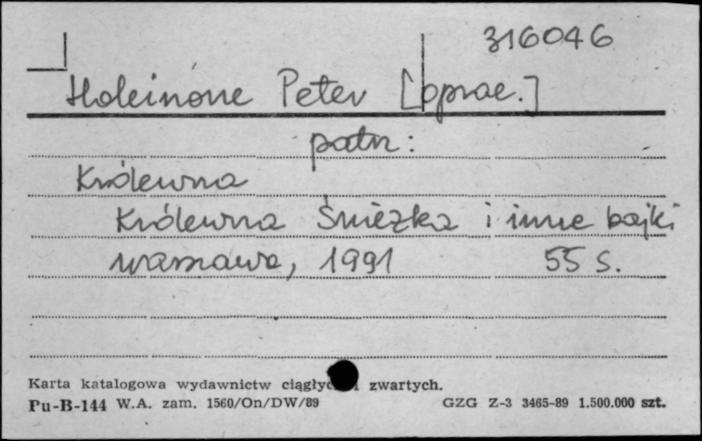 316046
Holeinone Peter [oprac.]
patrz:
Królewna
Królewna Śnieżka i inne bajki
Warszawa, 1991 55 s.
Karta katalogowa wydawnictw ciągłyc i zwartych.
Pu-B-144 W.A. zam. 1560/On/DW/89 GZG Z-3 3465-89 1.500.000 szt.